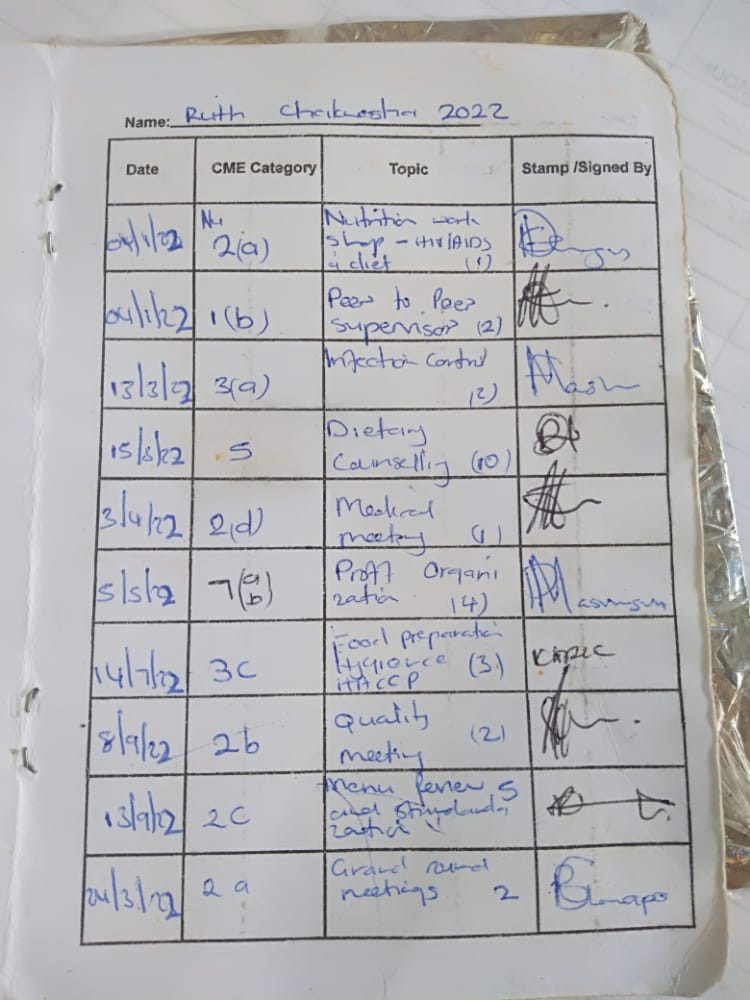 Name: Ruth 2022
Date CME Category Topic Stamp /Signed By
Nu
04/1/22 2(a) Nutrition work
shop - HIV/AIDS
& diet (1)
04/1/22 1(b) Peer to Peer
supervisor (2)
13/3/22 3(a) Infection Control
(2)
5 Dietary
Counselling (10)
3/4/22 2(d) Medical
meeting (1)
5/5/22 7(a
b) Proff Organi
zation (4)
14/7/22 3C Food preparation
Hygience (3)
HACCP
8/9/22 2b Quality
meeting (2)
13/9/22 2C Menu Review 5
and
zation
24/3/22 2a Grand round
meetings 2